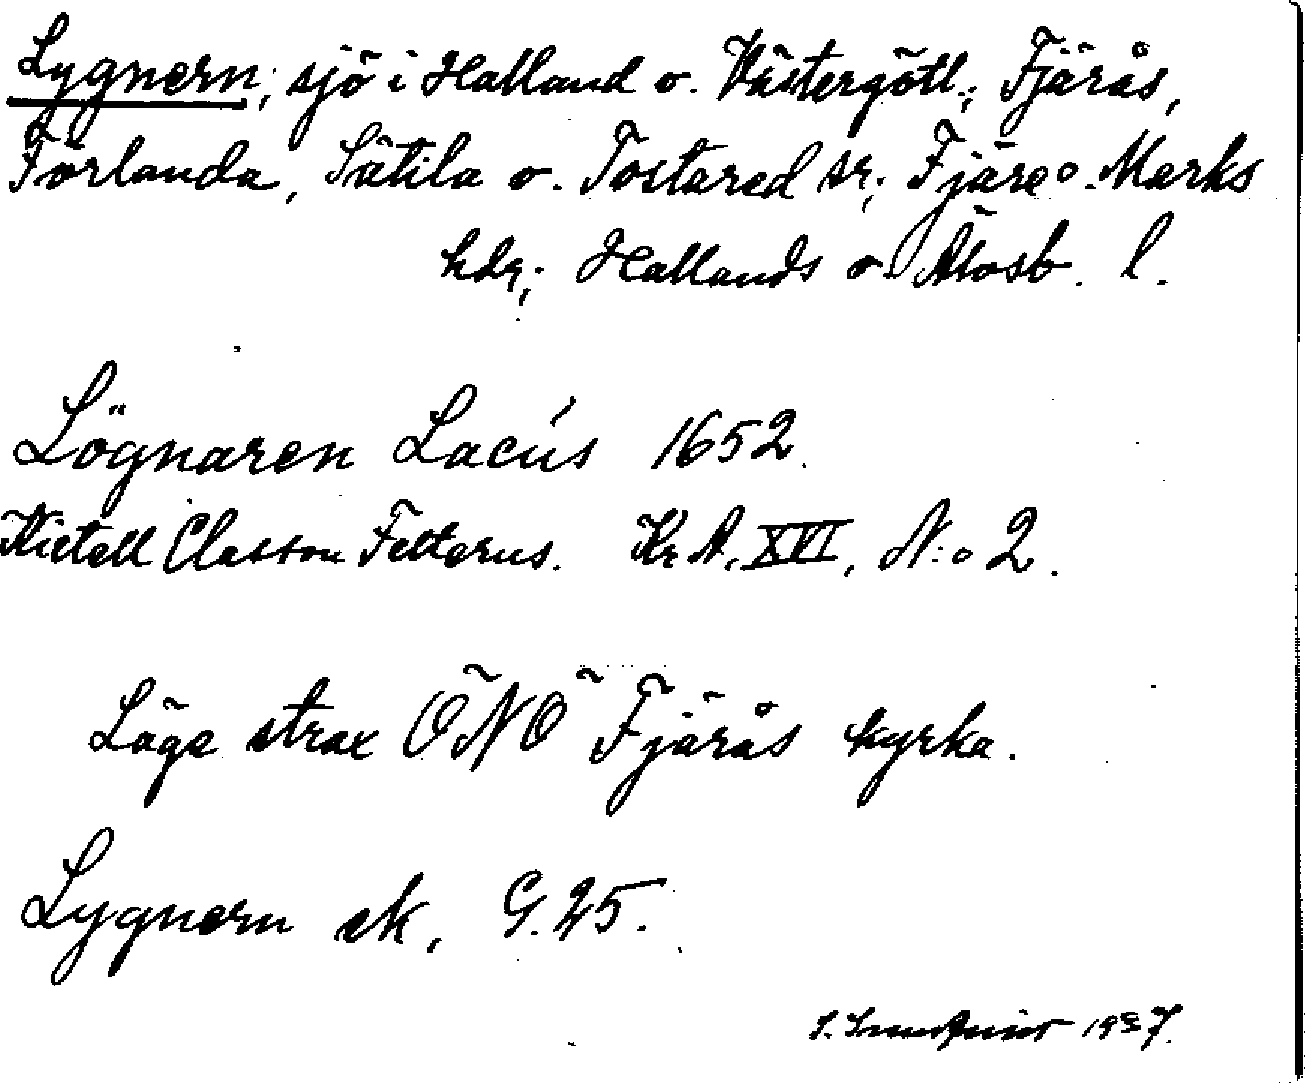 Lygnern; sjö i Halland o. Västergötl.; Fjärås,
Förlanda, Sätila o. Tostared sr; Fjäre o. Marks
hdr; Hallands o. Älvsb. l.
Lögnaren Lacús 1652.
Kietell Classon Felterus. Kr A. XVI, N:o 2.
Läge strax ÖNÖ Fjärås kyrka.
Lygnern ek. G. 25.
1937.